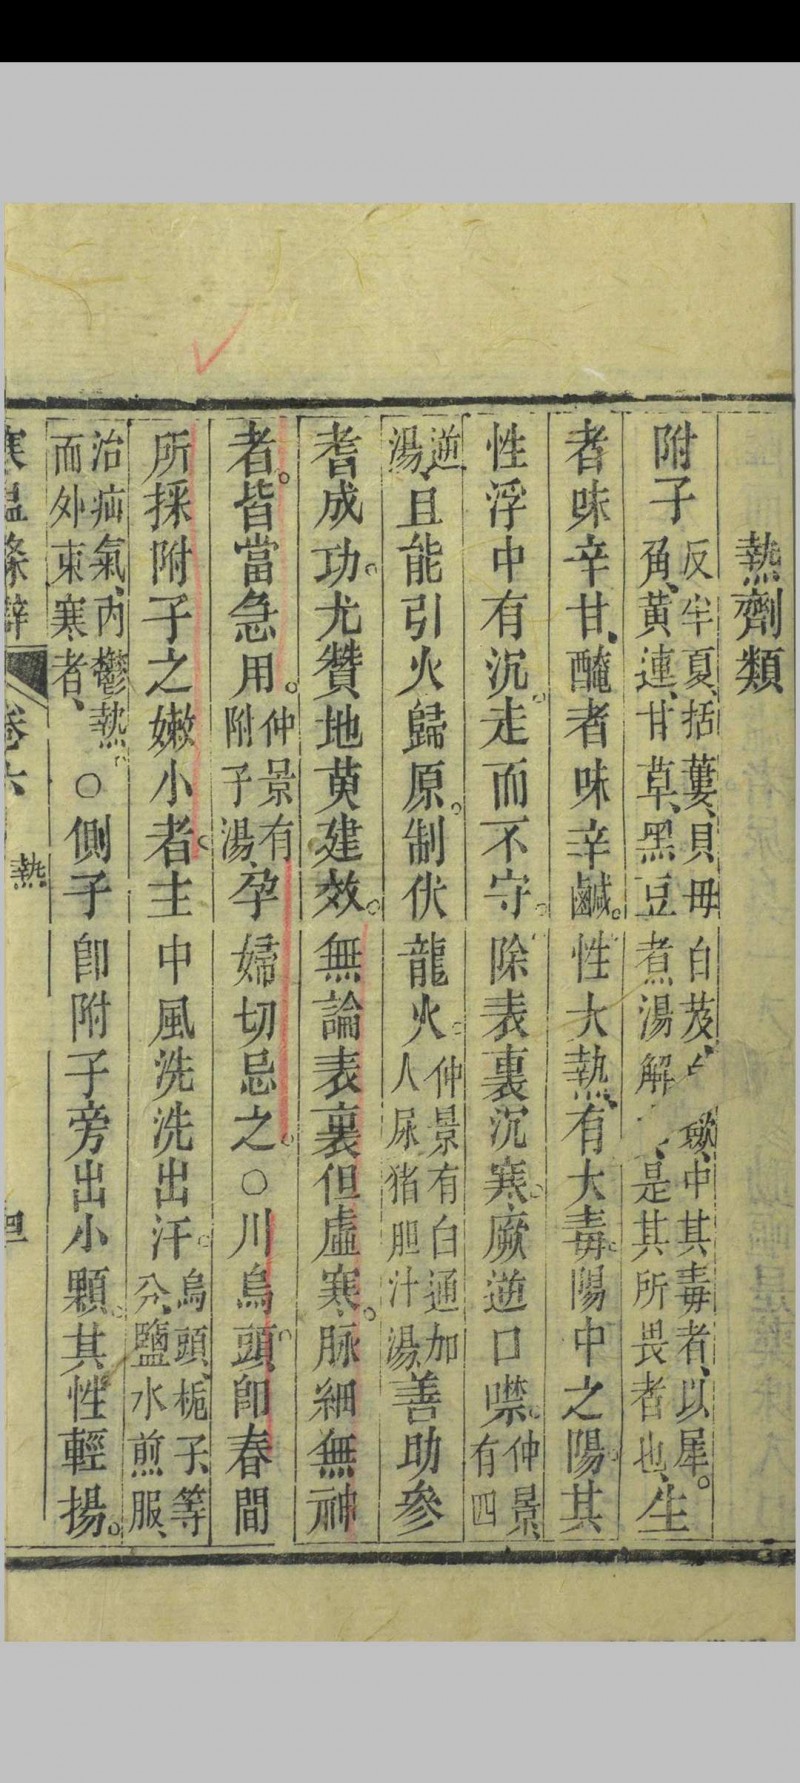 熱劑類
附子反半夏、括蔞、貝母、白芨、白蘞、中其毒者、以犀角、黃連、甘草、黑豆煮湯解之、是其所畏者也、生
者味辛甘、醃者味辛鹹。性大熱、有大毒。陽中之陽。其
性浮中有沉。走而不守。除表裏沉寒。厥逆口噤。仲景、有四
逆湯、且能引火歸原。制伏龍火。仲景有白通加人尿猪胆汁湯、善助參
耆成功。尤贊地萸建效。無論表裏但虛寒。脉細無神
者。皆當急用。仲景有附子湯、孕婦切忌之。○川烏頭。卽春間
所採附子之嫩小者。主中風洗洗出汗。烏頭、梔子、等分、鹽水煎服、
治疝氣、內鬱熱。而外束寒者、○側子卽附子旁出小顆。其性輕揚。
寒温條辯 卷六 熱 四